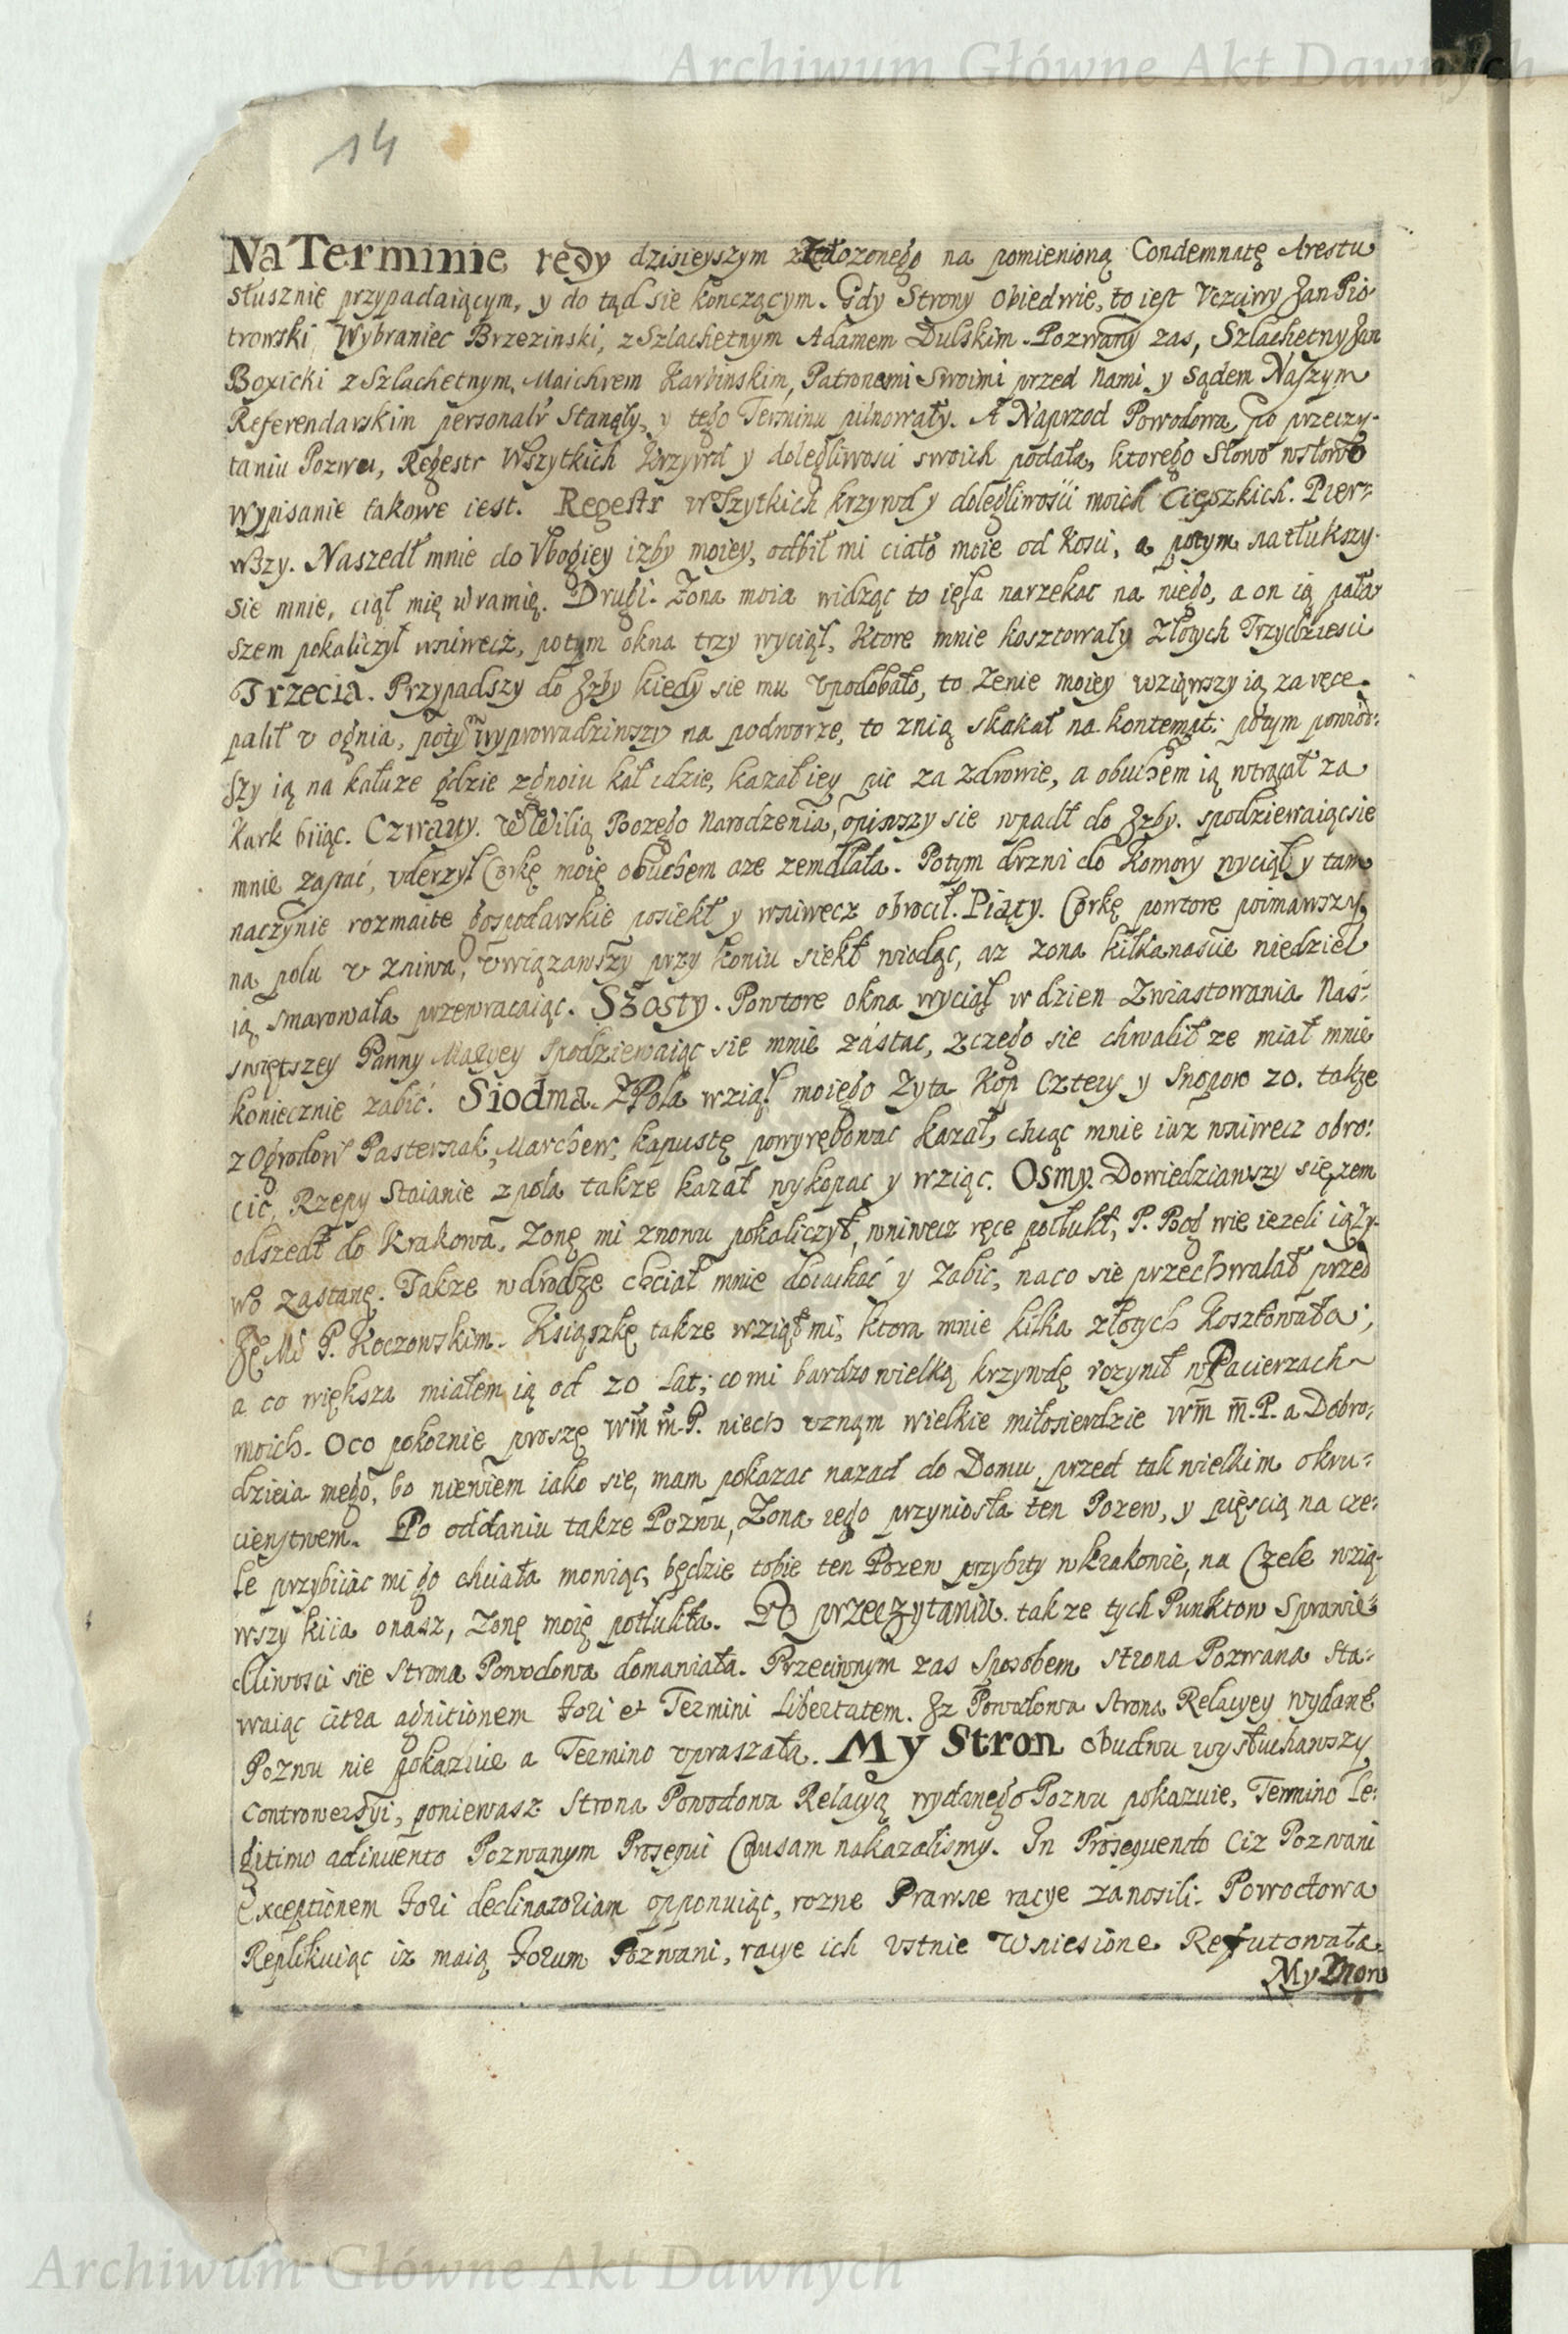 Archiwum Główne Akt Dawnych
14
Na Terminie tedy dzisieyszym złożonego na pomienioną Condemnatę Arestu
słusznie przypadaiącym, y do tąd sie konczącym. Gdy Strony obiedwie, to iest Vczciwy Jan Pio-
trowski Wybraniec Brzezinski, z Szlachetnym Adamem Dulskim. Pozwany zas, Szlachetny Jan
Boxicki z Szlachetnym Maichrem Karbinskim, Patronami Swoimi przed Nami y Sądem Naszym
Referendarskim personalr Stanęły, y tego Terminu pilnowały. A Naprzod Powodowa po przeczy-
taniu Pozwu, Regestr Wszytkich Krzywd y dolegliwosci swoich podała, ktorego Słowo wsłowo
wypisanie takowe iest. Regestr wszytkich krzywd y dolegliwosci moich Cięszkich. Pier-
wszy. Naszedł mnie do Vbogiey izby moiey, odbił mi ciało moie od kosci, a potym natłukszy
sie mnie, ciął mię w ramię. Drugi. Zona moia widząc to ięła narzekac na niego, a on ią pała-
szem pokaliczył wniwecz, potym okna trzy wyciął, Ktore mnie kosztowały Złotych Trzydziesci
Trzecia. Przypadszy do Jzby kiedy sie mu vpodobało, to Zenie moiey wziąwszy ią za ręce
palił v ognia, potym wyprowadziwszy na podworze, to znią skakał na kontempt: potym powiod-
szy ią na kałuze gdzie zgnoiu kał idzie, kazał iey pic za zdrowie, a obuchem ią wtrącał za
Kark biiąc. Czwarty. W Wilią Bozego Narodzenia, opiwszy sie wpadł do Jzby. spodziewaiąc sie
mnie zastać, vderzył Corkę moię obuchem aze zemdlała. Potym drzwi do Komory wyciął y tam
naczynie rozmaite gospodarskie posiekł y wniwecz obrocił. Piąty. Corkę powtore poimawszy
na polu v zniwa, vwiązawszy przy koniu siekł wiodąc, az zona kilkanascie niedziel
ią smarowała przewracaiąc. Szosty. Powtore okna wyciął w dzien Zwiastowania Naś-
swiętszey Panny Maryey spodziewaiąc sie mnie zástac, zczego sie chwalił ze miał mnie
koniecznie zabić. Siodma. Z Pola wziął moiego Zyta Kop Cztery y Snopow 20. takze
z Ogrodow Pasternak, Marchew, kapustę powyrębowac kazał, chcąc mnie iuz wniwecz obro-
cic, Rzepy Staianie z pola takze kazał wykopac y wziąc. Osmy. Dowiedziawszy się zem
odszedł do Krakowa, Zonę mi znowu pokaliczył, wniwecz ręce potłukł, P. Bog wie iezeli ią Zy-
wo zastanę. Takze w drodze chciał mnie docickać y zabic, naco sie przechwalał przed
Je Mć P. Koczowskim. Ksiąszkę takze wziął mi, ktora mnie kilka złotych Kosztowała;
a co większa miałem ią od 20 Lat; co mi bardzo wielką krzywdę vczynił w Pacierzach
moich. Oco pokornie proszę Wm m. P. niech vznam wielkie miłosierdzie Wm m. P. a Dobro-
dzieia mego, bo niewiem iako sie, mam pokazac nazad do Domu, przed tak wielkim okru-
cienstwem. Po oddaniu takze Pozwu, Zona iego przyniosła ten Pozew, y pięscią na cze-
le przybiiac mi go chciała mowiąc, będzie tobie ten Pozew przybity w Krakowie, na Czele wzią-
wszy kiia onasz, Zonę moię potłukła. Po przeczytaniu takze tych Punktow Sprawie-
dliwosci sie Strona Powodowa domawiała. Przeciwnym zas sposobem strona Pozwana sta-
waiąc citra agnitionem Fori et Termini Libertatem. Jz Powodowa Strona Relacyey wydane
Pozwu nie pokazuie a Termino vpraszała. My Stron obudwu wysłuchawszy
Controwersyi, poniewasz Strona Powodowa Relacyą wydanego Pozwu pokazuie, Termino Le-
gitimo adinuento Pozwanym Prosequi Causam nakazalismy. In Prosequendo Ciz Pozwani
Exceptionem Fori declinatoriam opponuiąc, rozne Prawne racye zanosili. Powodowa
Replikuiąc iz maią Forum Pozwani, racye ich vstnie Wniesione Refutowała.
My Stron
Archiwum Główne Akt Dawnych